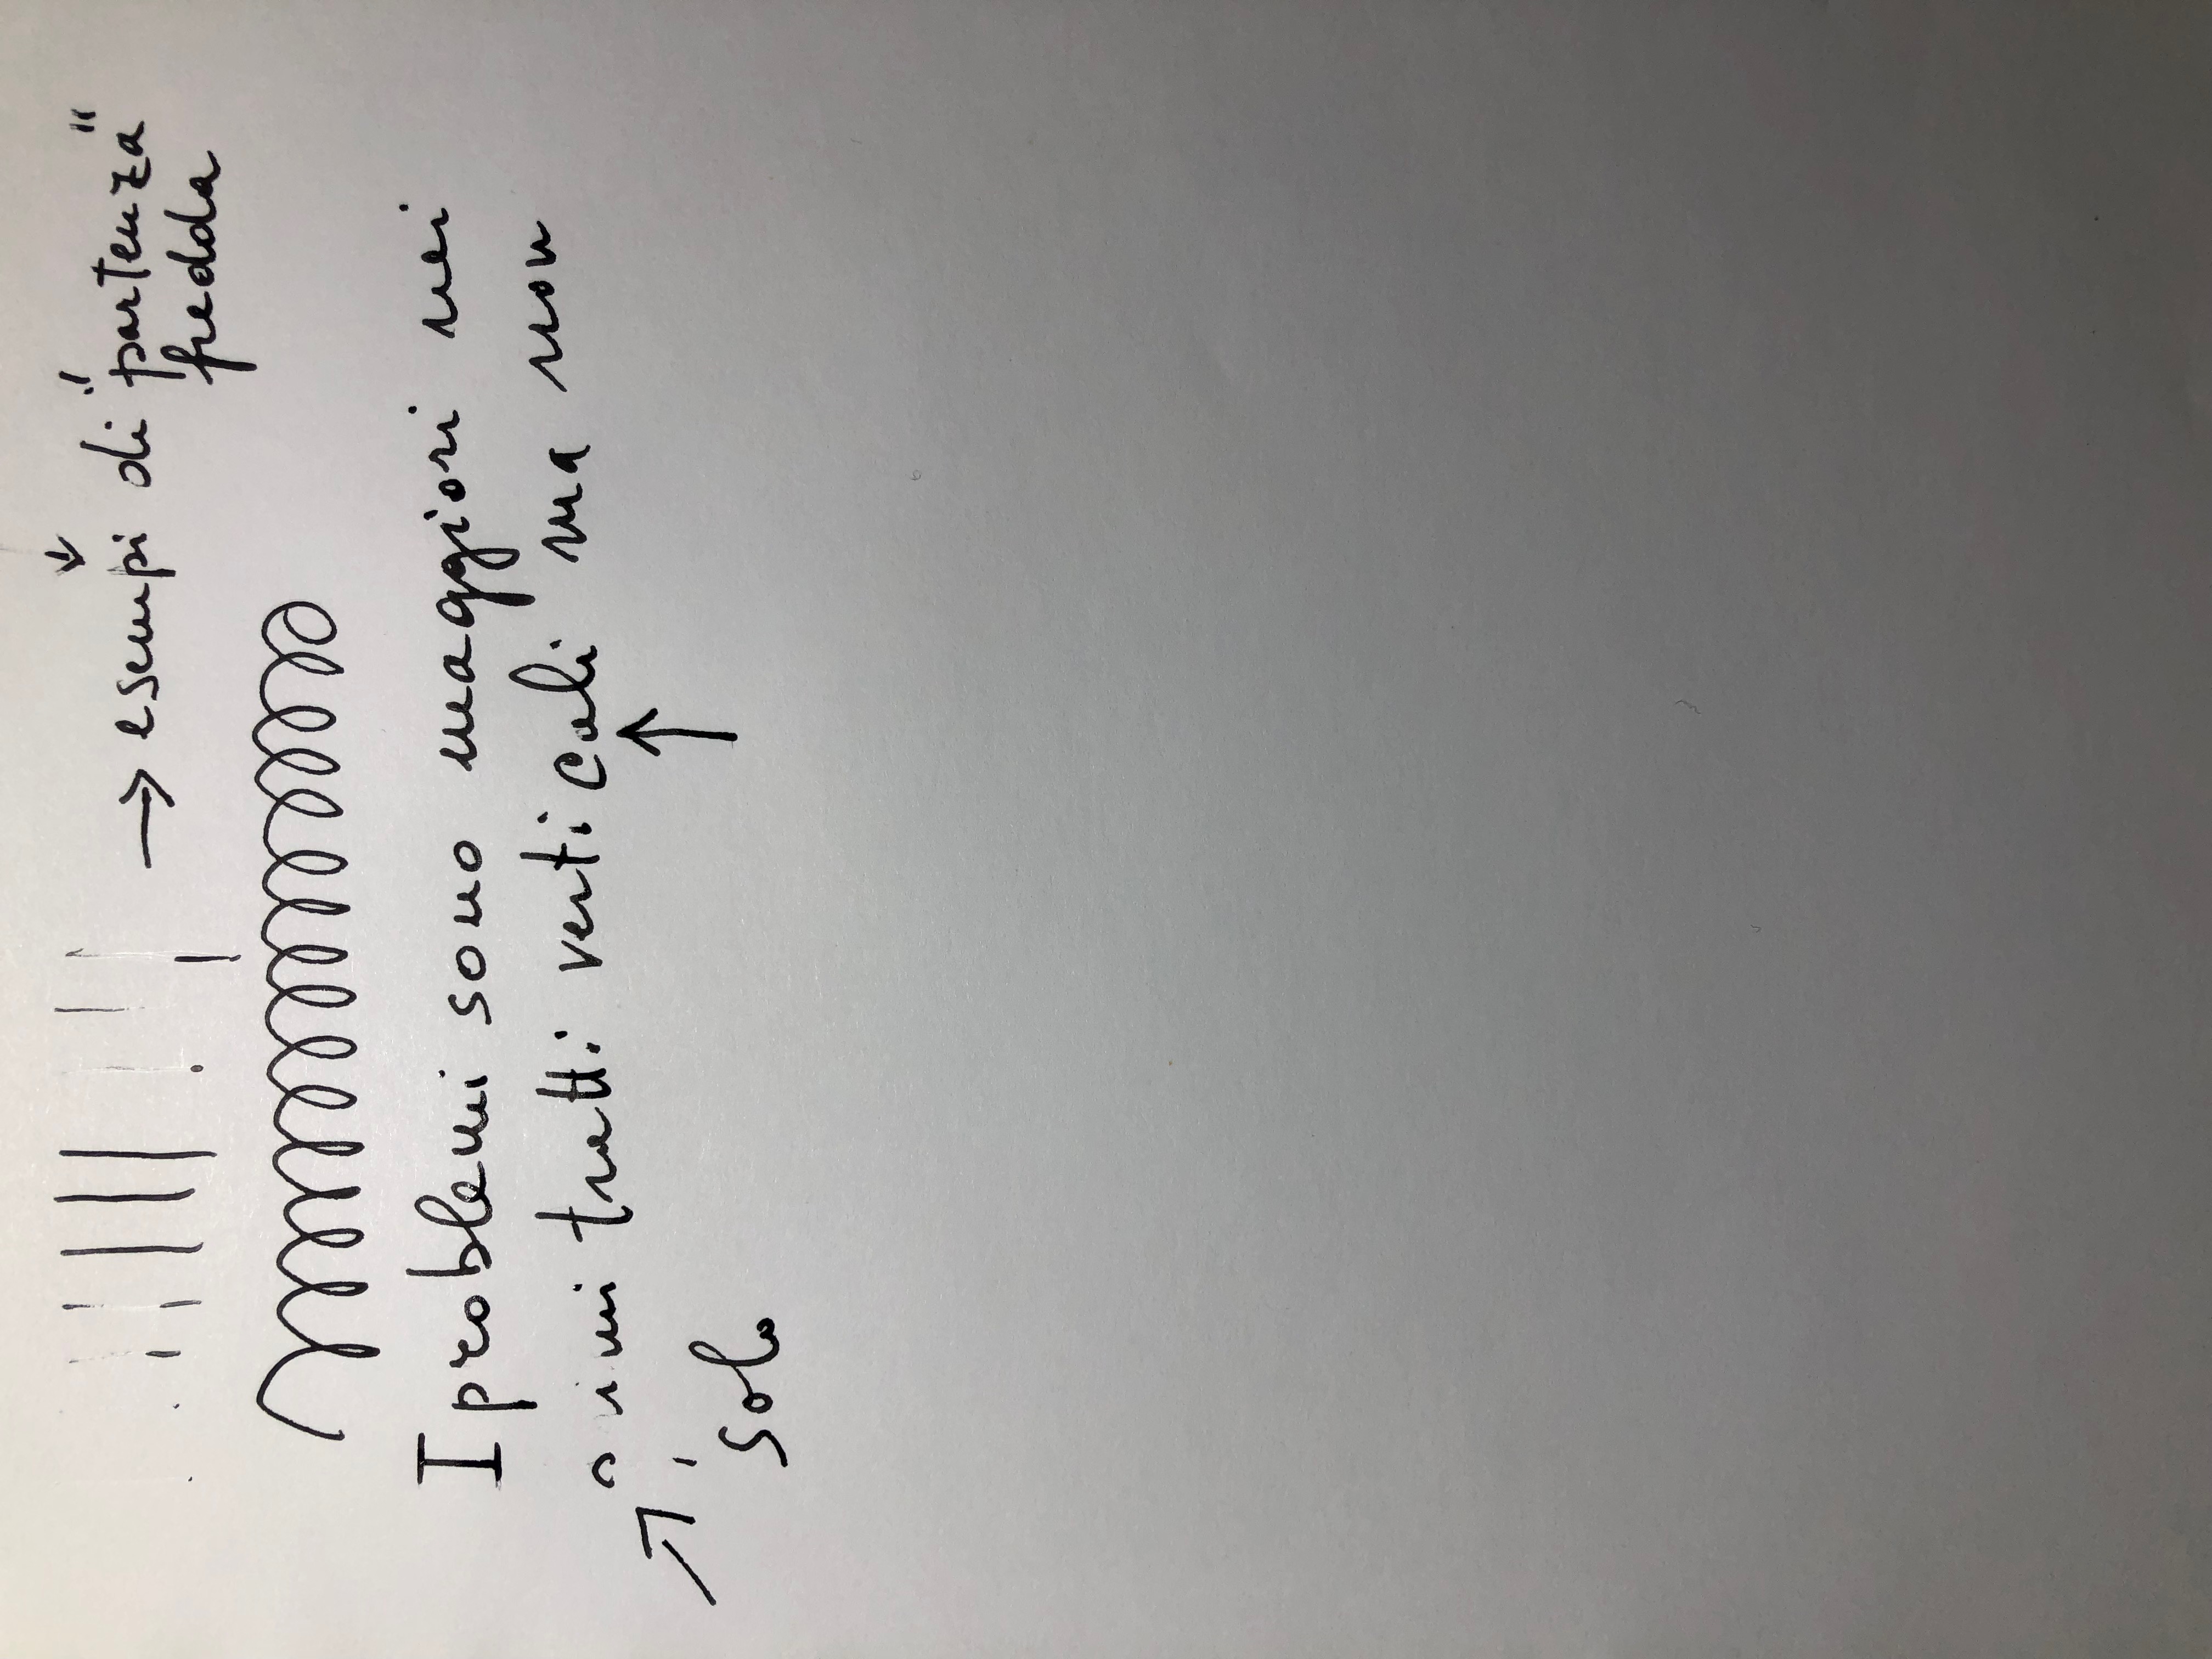 → esempi di "partenza"
fredda
I problemi sono maggiori nei
primi tratti verticali ma non
solo